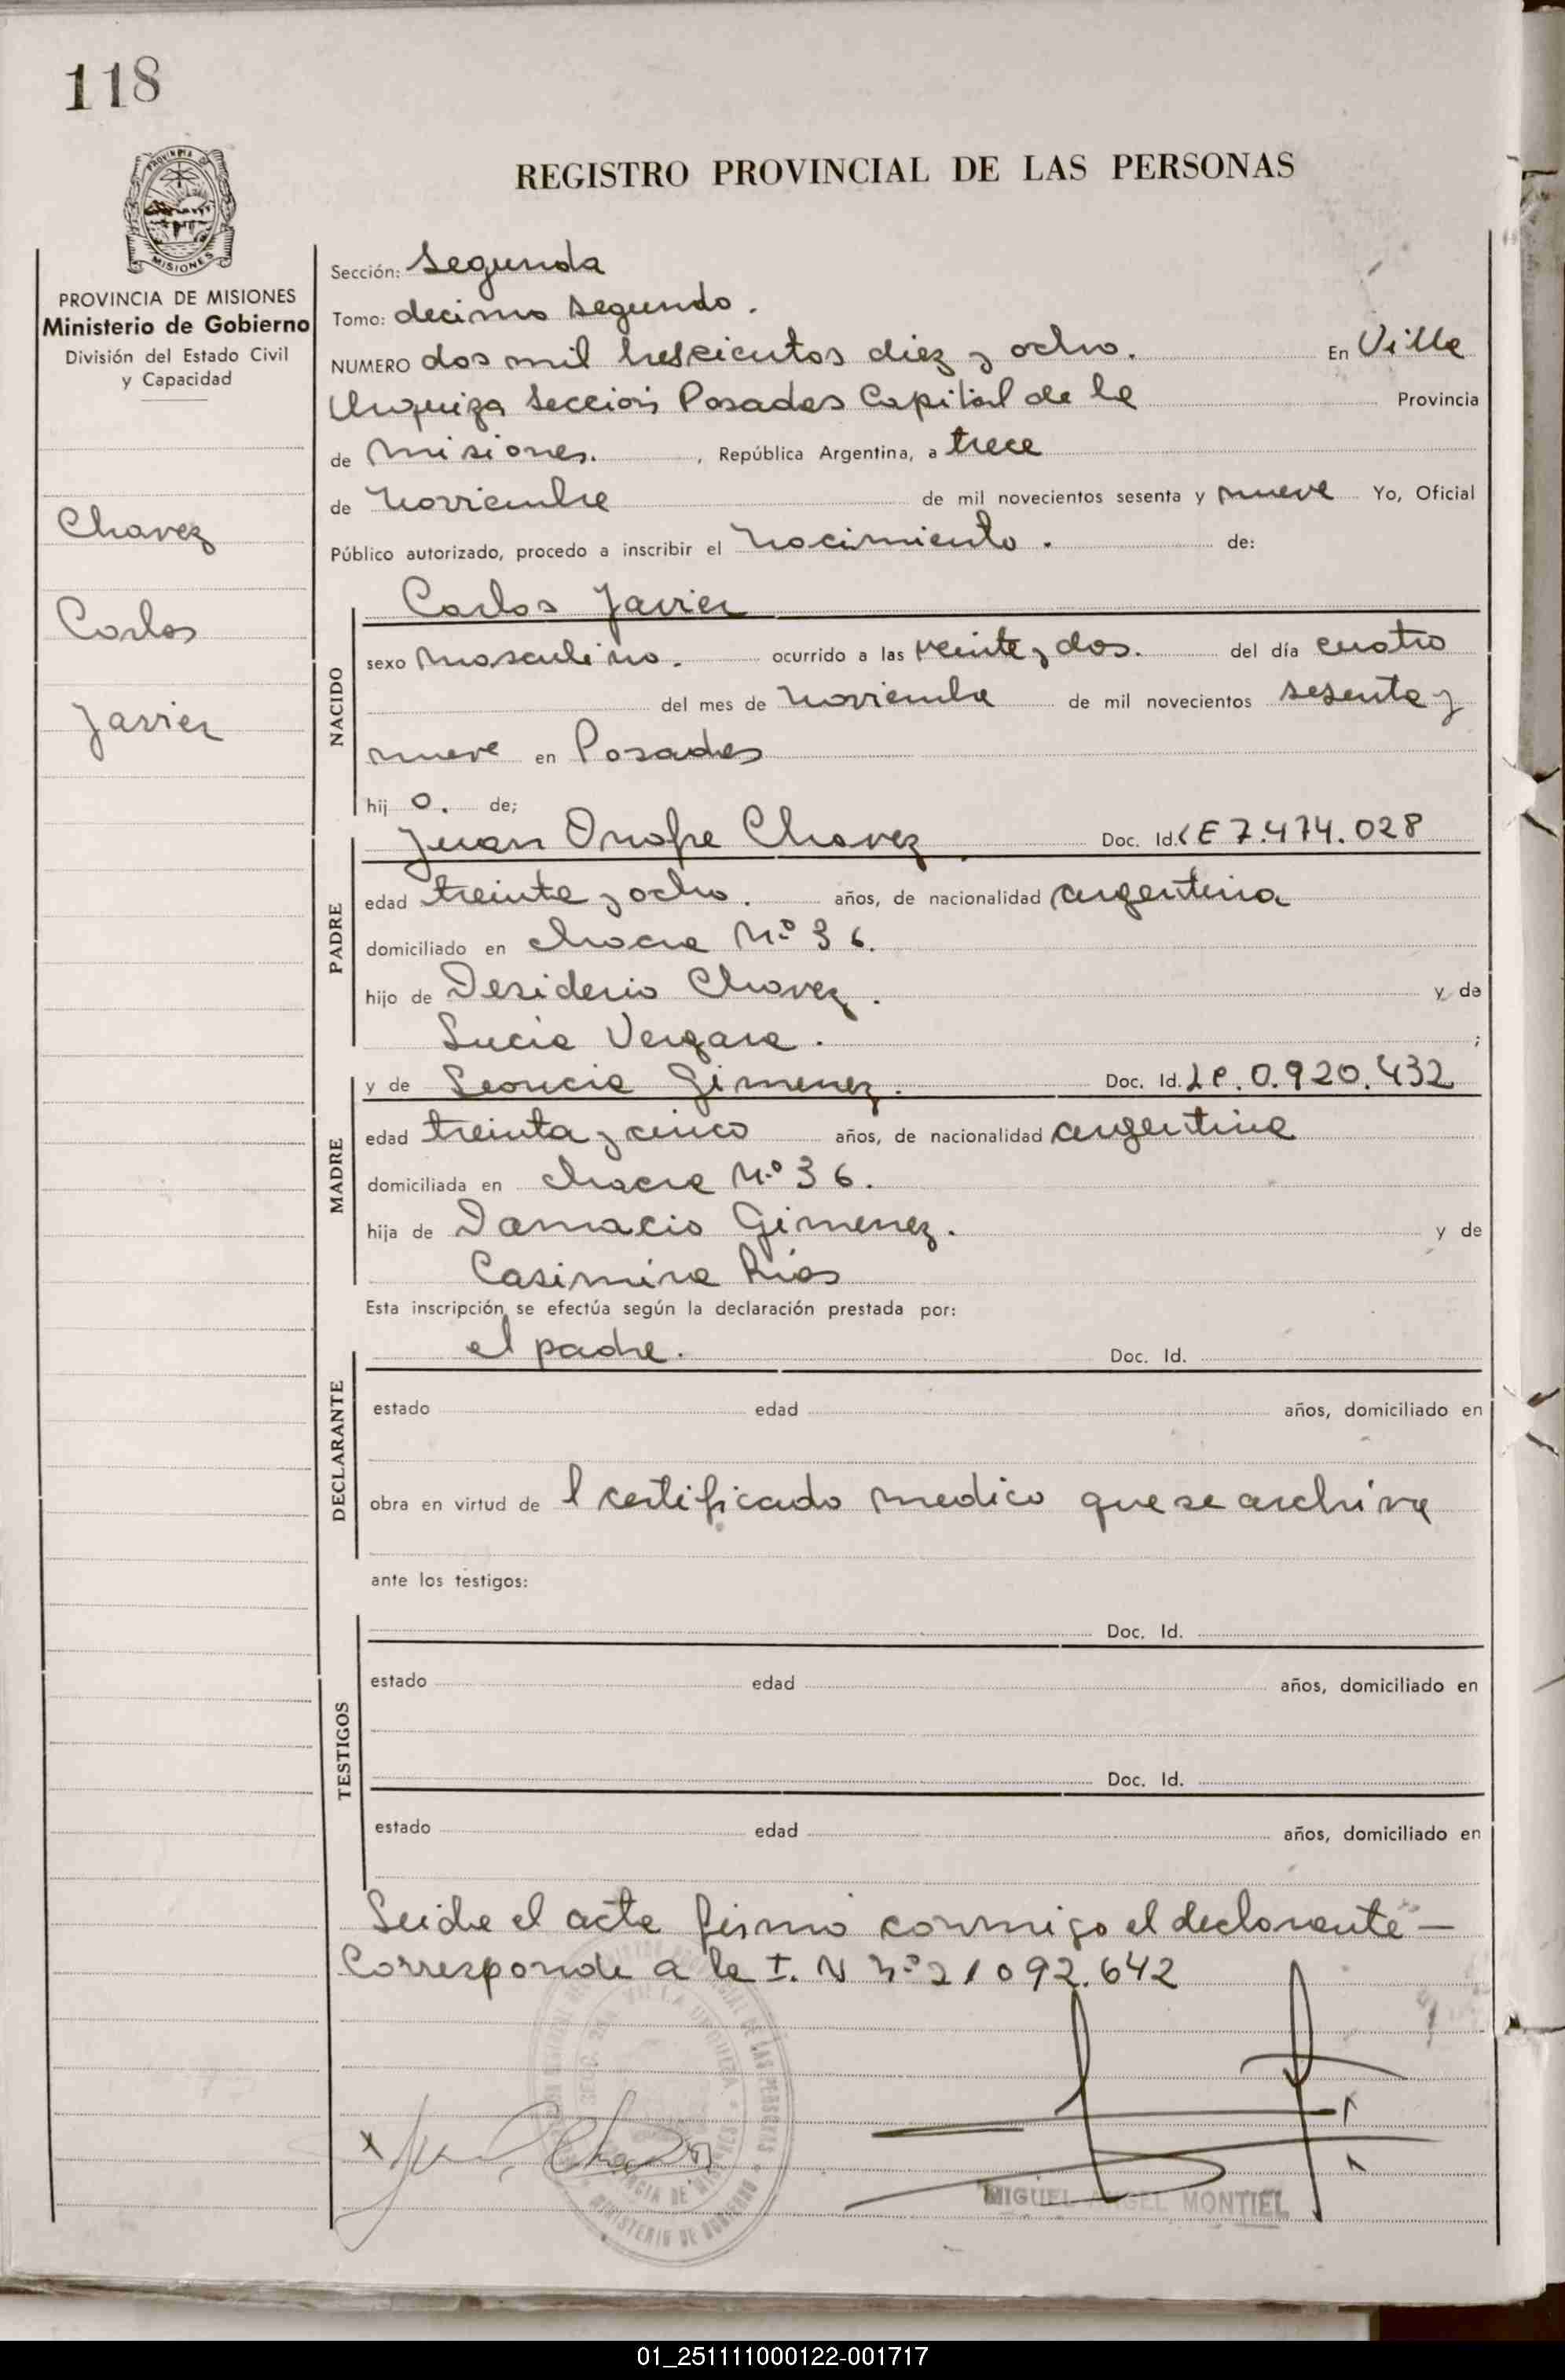 118
REGISTRO PROVINCIAL DE LAS PERSONAS
PROVINCIA DE MISIONES
Ministerio de Gobierno
División del Estado Civil
y Capacidad
Chavez
Carlos
Javier
Sección: Segunda
Tomo: decimo segundo.
NUMERO dos mil trescientos diez y ocho. En Villa
Urquiza Seccion Posadas Capital de la Provincia
de Misiones. , República Argentina, a trece
de Noviembre de mil novecientos sesenta y nueve Yo, Oficial
Público autorizado, procedo a inscribir el Nacimiento. de:
NACIDO
Carlos Javier
sexo masculino. ocurrido a las veinte y dos. del día cuatro
del mes de Noviembre de mil novecientos sesenta y
nueve en Posadas
hij o. de;
PADRE
Juan Onofre Chavez Doc. Id. LE 7.474.028
edad treinta y ocho. años, de nacionalidad argentina
domiciliado en chacra Nº 36.
hijo de Desiderio Chavez. y de
Lucia Vergara. ;
MADRE
y de Leoncia Gimenez. Doc. Id. LC. 0.920.432
edad treinta y cinco años, de nacionalidad argentina
domiciliada en chacra Nº 36.
hija de Damacio Gimenez. y de
Casimira Rios
Esta inscripción se efectúa según la declaración prestada por:
DECLARANTE
el padre. Doc. Id.
estado edad años, domiciliado en
obra en virtud de l certificado medico que se archiva
ante los testigos:
TESTIGOS
Doc. Id.
estado edad años, domiciliado en
Doc. Id.
estado edad años, domiciliado en
Leida el acta firma conmigo el declarante —
Corresponde a la I. N Nº 21092.642
MIGUEL ANGEL MONTIEL
01_251111000122-001717